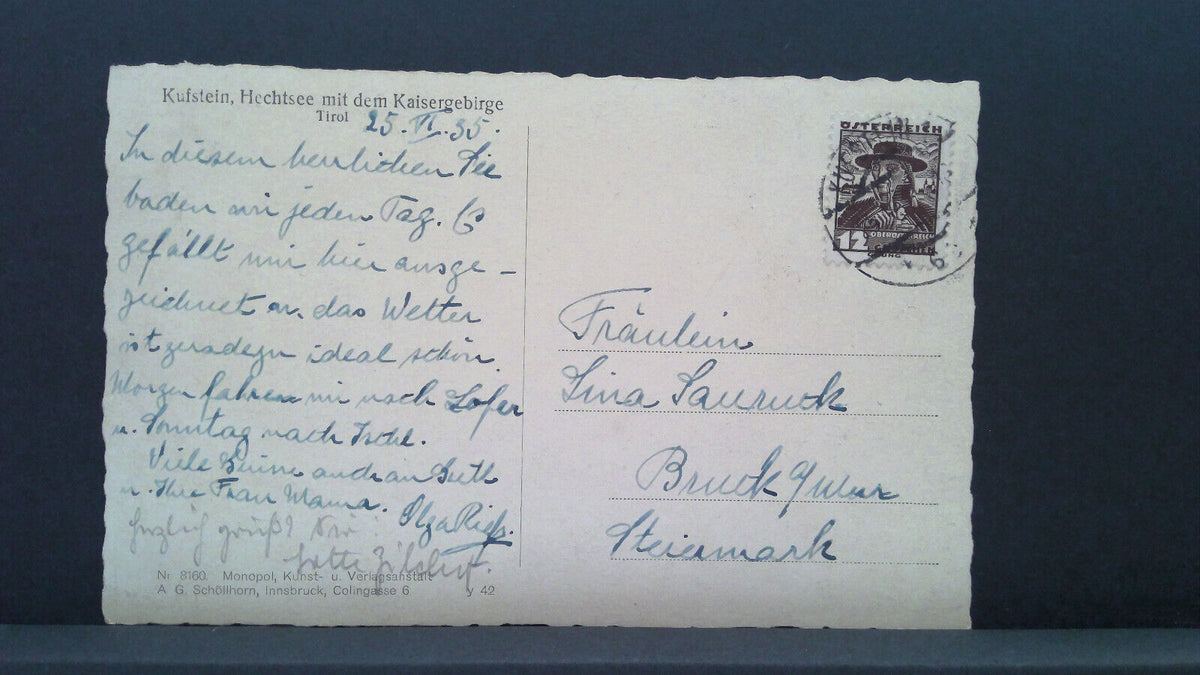 Kufstein, Hechtsee mit dem Kaisergebirge
Tirol
25. VI. 35.
In diesem herrlichen See
baden wir jeden Tag. Es
gefällt mir hier ausge-
zeichnet u. das Wetter
ist geradezu ideal schön.
Morgen fahren wir nach Lofer
u. Sonntag nach Ischl.
Viele Grüsse auch an Gretl
u. Ihre Frau Mama. Olga
Herzlich grüßt Sie
Nr 8160 Monopol, Kunst- u. Verlagsanstalt
A G. Schöllhorn, Innsbruck, Colingasse 6 y 42
ÖSTERREICH
OBERÖSTERREICH
12 GROSCHEN
Fräulein
Lina Sauruck
Bruck
Steiermark